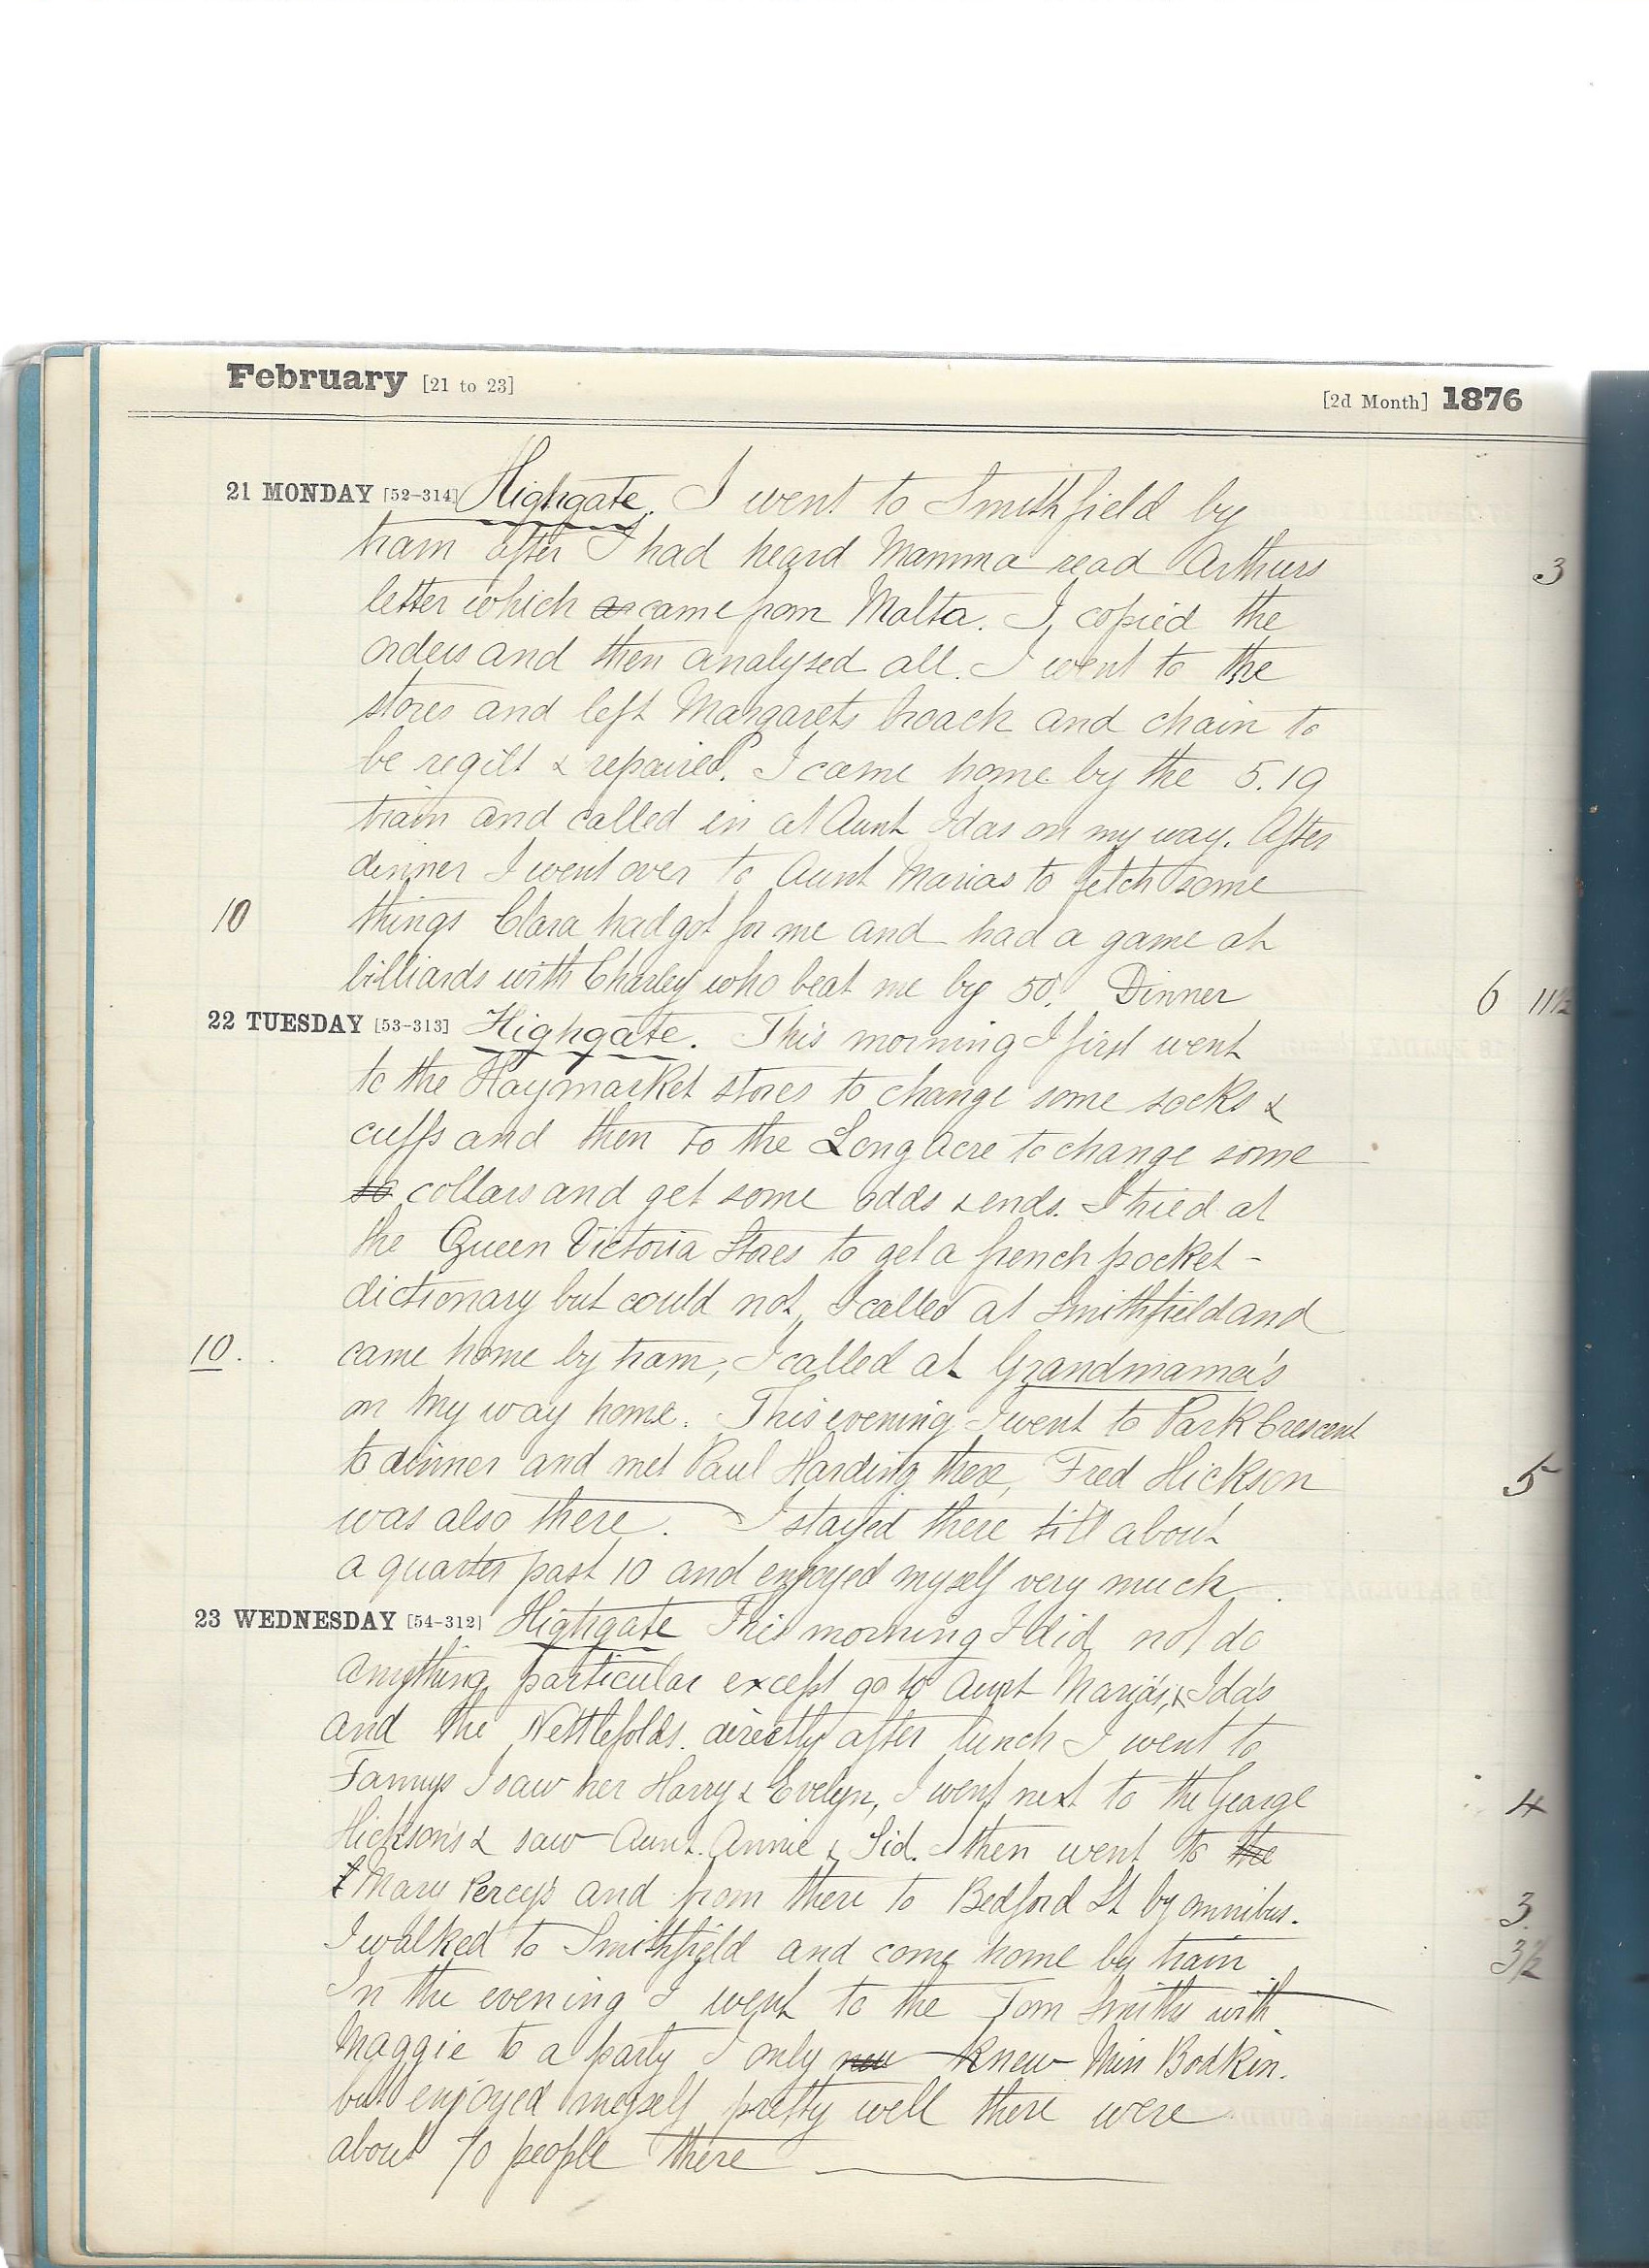 February [21 to 23] [2d Month] 1876
21 MONDAY [52-314] Highgate. I went to Smithfield by
tram after I had heard Mamma read Arthurs 3
letter which came from Malta. I copied the
orders and then analysed all. I went to the
stores and left Margarets broach and chain to
be regilt & repaired. I came home by the 5.19
train and called in at Aunt Idas on my way. After
dinner I went over to Aunt Marias to fetch some
10 things Clara had got for me and had a game at
billiards with Charley who beat me by 50. Dinner 6 11½
22 TUESDAY [53-313] Highgate. This morning I first went
to the Haymarket stores to change some socks &
cuffs and then to the Long Acre to change some
so collars and get some odds & ends. I tried at
the Queen Victoria Stores to get a french pocket-
dictionary but could not, I called at Smithfield and
10. came home by tram, I called at Grandmama's
on my way home. This evening I went to Park Crescent
to dinner and met Paul Harding there, Fred Hickson 5
was also there. I stayed there till about
a quarter past 10 and enjoyed myself very much.
23 WEDNESDAY [54-312] Highgate This morning I did not do
anything particular except go to Aunt Maria's, & Ida's
and the Nettlefolds. directly after lunch I went to
Fannys I saw her Harry & Evelyn, I went next to the George 4
Hickson's & saw Aunt Annie & Sid. I then went to the
Mary Percy's and from there to Bedford St by omnibus. 3
I walked to Smithfield and come home by train 3½
In the evening I went to the Tom Smiths with
Maggie to a party I only new knew Miss Bodkin.
but enjoyed myself pretty well there were
about 70 people there